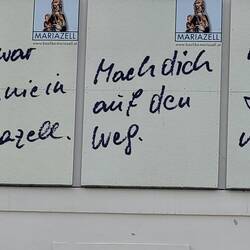 MARIAZELL
www.basilika-mariazell.at
war
nie in
azell.
MARIAZELL
www.basilika-mariazell.at
Mach dich
auf den
Weg.